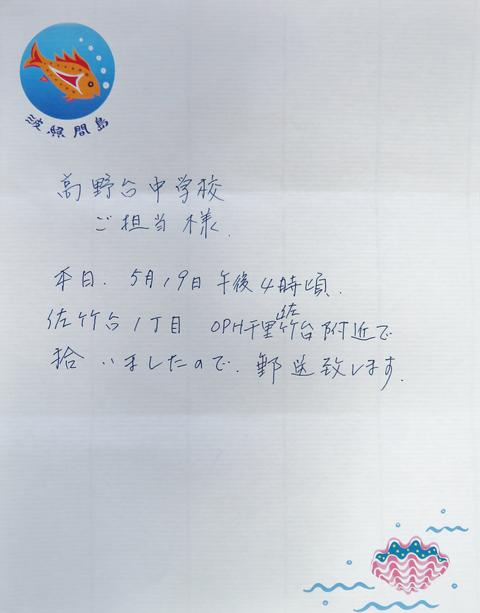 波照間島
高野台中学校
ご担当様.
本日. 5月19日午後4時頃.
佐竹台1丁目 OPH千里佐竹台附近で
拾いましたので. 郵送致します.